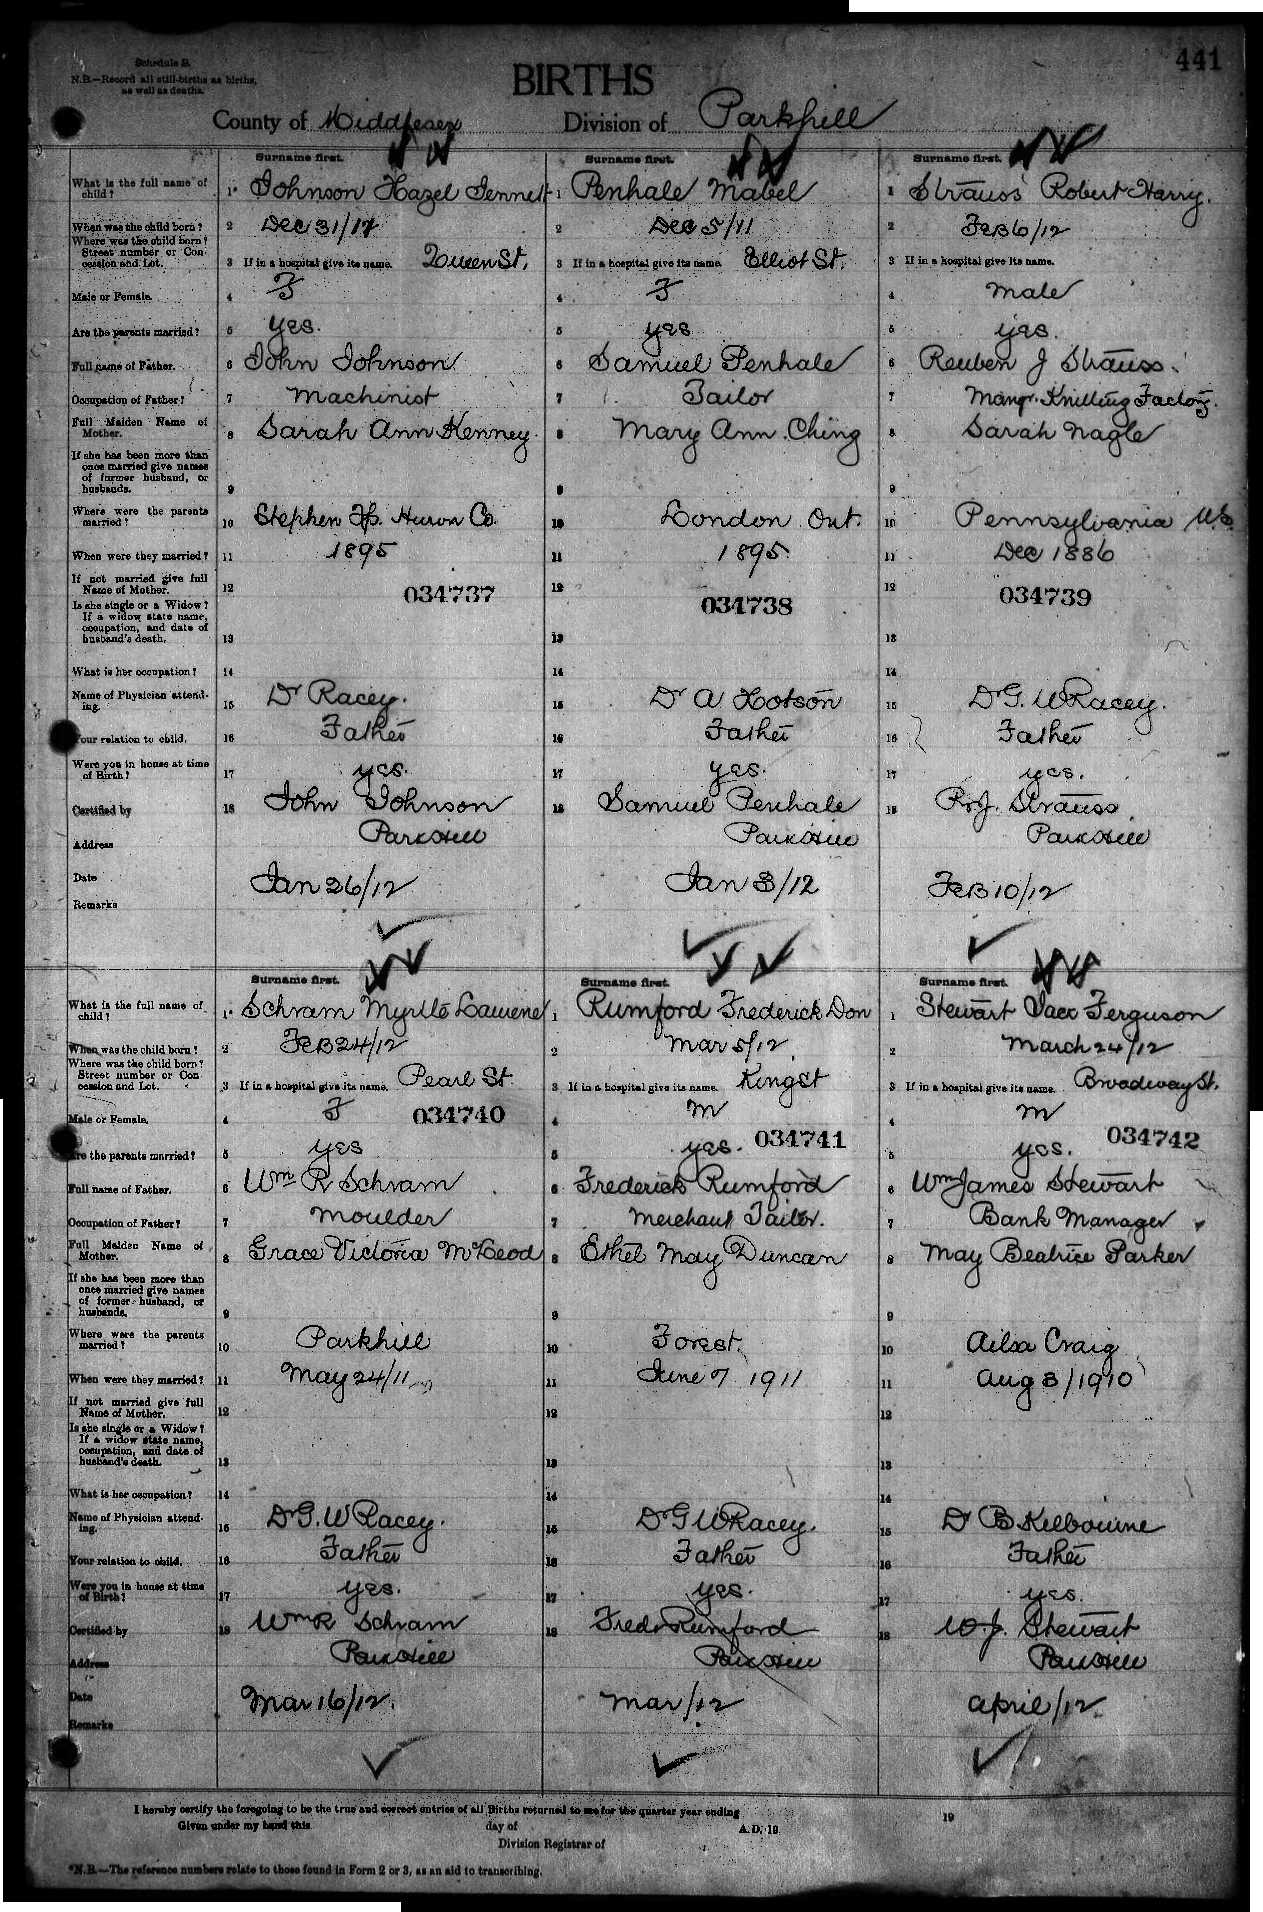 Schedule B.
N.B.—Record all still-births as births,
as well as deaths.
BIRTHS
441
County of Middlesex
Division of Parkhill
Surname first.
Surname first.
Surname first.
What is the full name of child?
1 Johnson Hazel Jennett
1 Penhale Mabel
1 Strauss Robert Harry.
When was the child born?
2 Dec 31/11
2 Dec 5/11
2 Feb 6/12
Where was the child born? Street number or Concession and Lot.
3 If in a hospital give its name. Queen St.
3 If in a hospital give its name. Elliot St.
3 If in a hospital give its name.
Male or Female.
4 F
4 F
4 male
Are the parents married?
5 yes.
5 yes
5 yes.
Full name of Father.
6 John Johnson
6 Samuel Penhale
6 Reuben J Strauss.
Occupation of Father?
7 Machinist
7 Tailor
7 Mangr. Knitting Factory.
Full Maiden Name of Mother.
8 Sarah Ann Kenney.
8 Mary Ann Ching
8 Sarah Nagle
If she has been more than once married give names of former husband, or husbands.
9
9
9
Where were the parents married?
10 Stephen Tp. Huron Co.
10 London Ont.
10 Pennsylvania US
When were they married?
11 1895
11 1895
11 Dec 1886
If not married give full Name of Mother.
12 034737
12 034738
12 034739
Is she single or a Widow? If a widow state name, occupation, and date of husband's death.
13
13
13
What is her occupation?
14
14
14
Name of Physician attending.
15 Dr Racey.
15 Dr A Hotson
15 Dr G. W Racey.
Your relation to child.
16 Father
16 Father
16 Father
Were you in house at time of Birth?
17 yes.
17 yes.
17 yes.
Certified by
18 John Johnson
18 Samuel Penhale
18 R. J. Strauss
Address
ParkHill
ParkHill
ParkHill
Date
Jan 26/12
Jan 3/12
Feb 10/12
Remarks
Surname first.
Surname first.
Surname first.
What is the full name of child?
1 Schram Myrtle
1 Rumford Frederick Don
1 Stewart Jack Ferguson
When was the child born?
2 Feb 24/12
2 Mar 5/12
2 March 24/12
Where was the child born? Street number or Concession and Lot.
3 If in a hospital give its name. Pearl St
3 If in a hospital give its name. King St
3 If in a hospital give its name. Broadway St.
Male or Female.
4 F 034740
4 M
4 M
Are the parents married?
5 yes
5 yes. 034741
5 yes. 034742
Full name of Father.
6 Wm R Schram
6 Frederick Rumford
6 Wm James Stewart
Occupation of Father?
7 Moulder
7 Merchant Tailor.
7 Bank Manager
Full Maiden Name of Mother.
8 Grace Victoria McLeod
8 Ethel May Duncan
8 May Beatrice Parker
If she has been more than once married give names of former husband, or husbands.
9
9
9
Where were the parents married?
10 Parkhill
10 Forest.
10 Ailsa Craig
When were they married?
11 May 24/11
11 June 7 1911
11 Aug 3/1910
If not married give full Name of Mother.
12
12
12
Is she single or a Widow? If a widow state name, occupation, and date of husband's death.
13
13
13
What is her occupation?
14
14
14
Name of Physician attending.
15 Dr G. W Racey.
15 Dr G W Racey.
15 Dr B Kelbourne
Your relation to child.
16 Father
16 Father
16 Father
Were you in house at time of Birth?
17 yes.
17 yes.
17 yes.
Certified by
18 Wm R Schram
18 Fred Rumford
18 W. J. Stewart
Address
ParkHill
ParkHill
ParkHill
Date
Mar 16/12.
Mar/12
April/12.
Remarks
I hereby certify the foregoing to be the true and correct entries of all Births returned to me for the quarter year ending 19
Given under my hand this day of A.D. 19
Division Registrar of
*N.B.—The reference numbers relate to those found in Form 2 or 3, as an aid to transcribing.